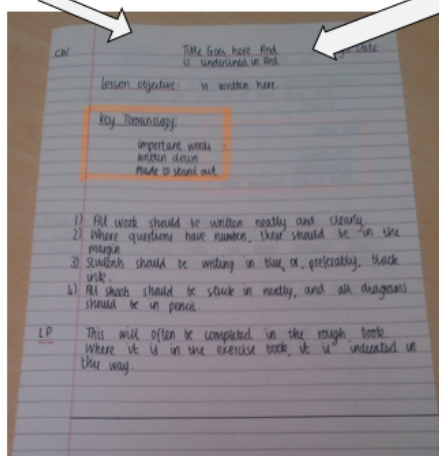 CW Title Goes here And Date
is underlined in Red
Lesson objective: is written here
Key Terminology:
important words
written down
Made to stand out
1) All work should be written neatly and clearly
2) Where questions have numbers, these should be in the
margin
3) Students should be writing in blue, or, preferably, black
ink.
4) All sheets should be stuck in neatly, and all diagrams
should be in pencil
LP This will often be completed in the rough book.
Where it is in the exercise book, it is indicated in
this way.